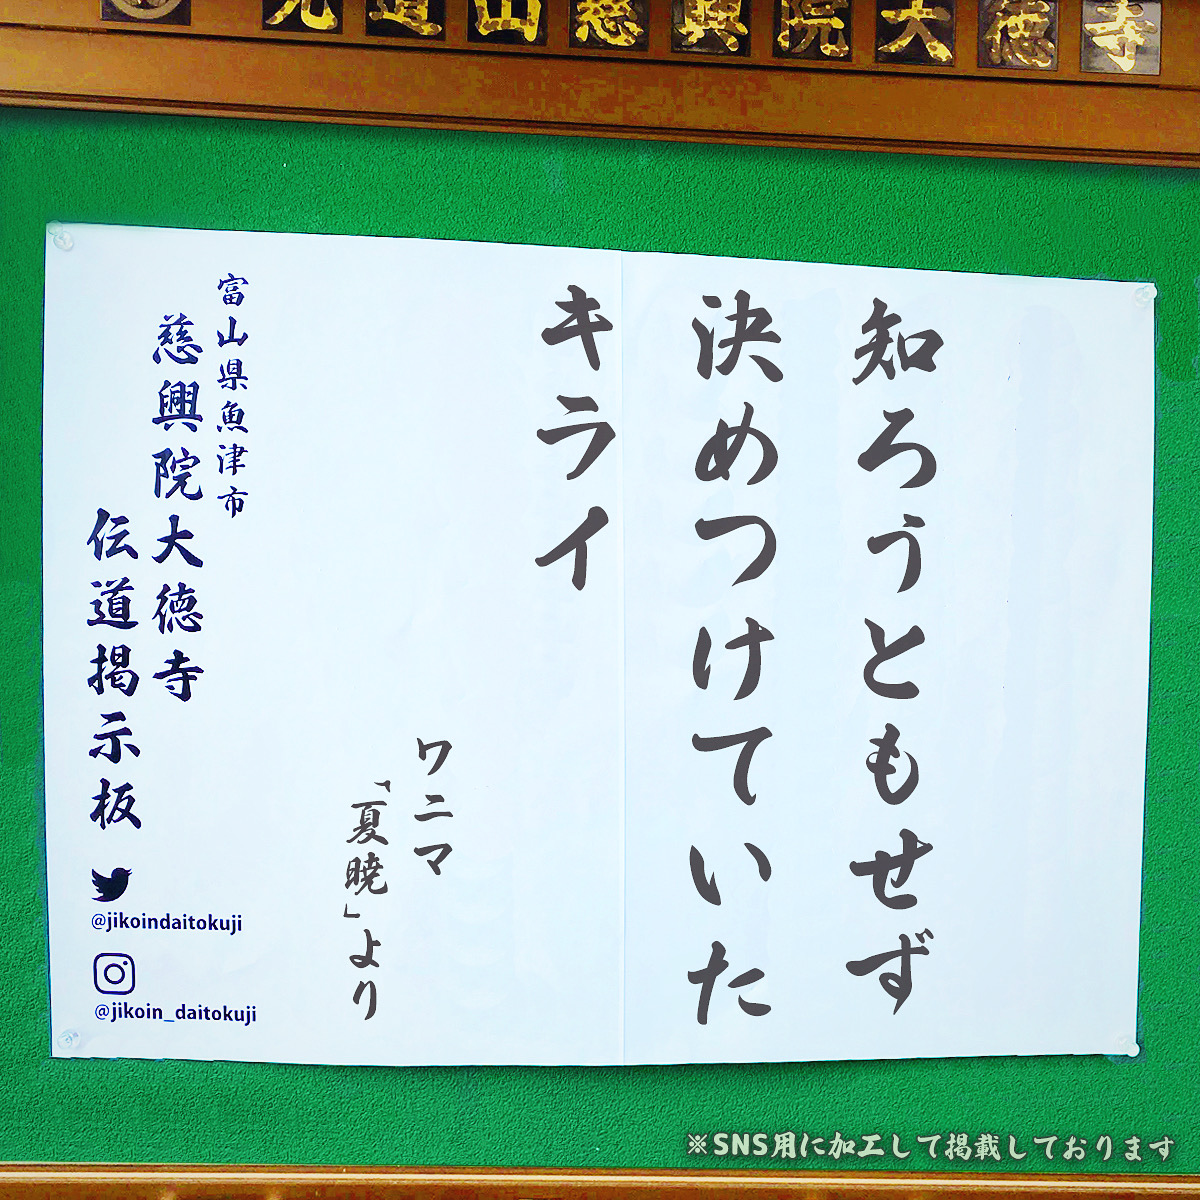 光道山慈興院大徳寺
知ろうともせず
決めつけていた
キライ
ワニマ
「夏暁」より
富山県魚津市
慈興院大徳寺
伝道掲示板
@jikoindaitokuji
@jikoin_daitokuji
※SNS用に加工して掲載しております